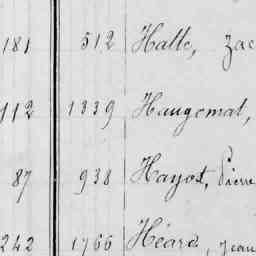 181 512 Halle, Zac
112 1339 Haugomat,
87 938 Hayot, Pierre
242 1766 Héard, Jean